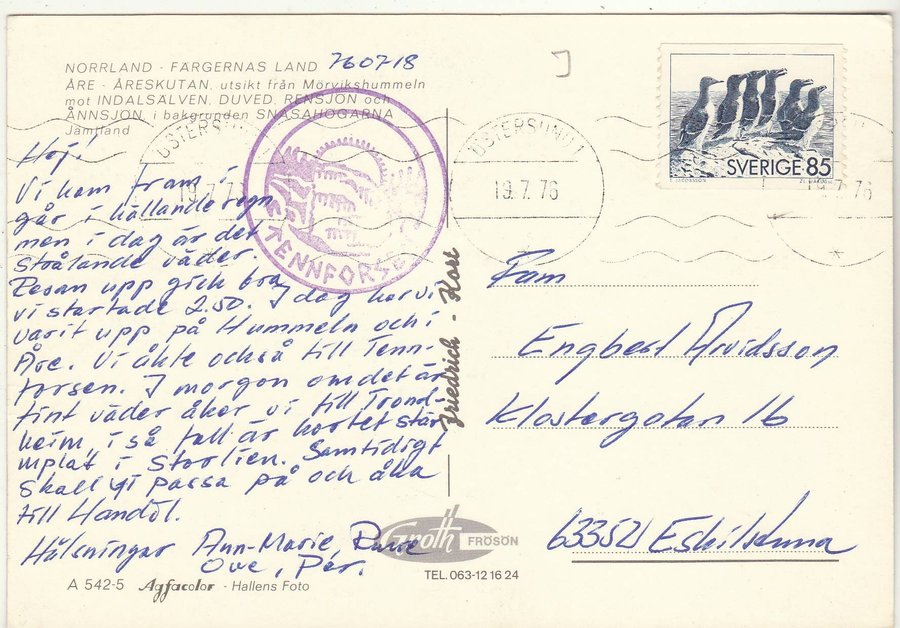 NORRLAND · FÄRGERNAS LAND 760718
ÅRE · ÅRESKUTAN, utsikt från Mörvikshummeln
mot INDALSÄLVEN, DUVED, RENSJÖN och
ÅNNSJÖN, i bakgrunden SNASAHÖGARNA
Jämtland
Hej!
Vi kom fram i
går i hällande regn
men i dag är det
strålande väder.
Resan upp gick bra,
vi startade 2.50. I dag har vi
varit upp på Hummeln och i
Åre. Vi åkte också till Tenn-
forsen. I morgon om det är
fint väder åker vi till Trond-
heim, i så fall är kortet stäm-
plat i Storlien. Samtidigt
skall vi passa på och åka
till Handöl.
Hälsningar Ann-Marie,
Ove, Per.
A 542-5 Agfacolor · Hallens Foto
TENNFORSEN
Friedrich - Kort
Groth FRÖSÖN
TEL. 063-12 16 24
ÖSTERSUND 1
19.7.76
ÖSTERSUND 1
19.7.76
19.7.76
SVERIGE 85
Fam
Engbert Arvidsson
Klostergatan 16
63352 Eskilstuna